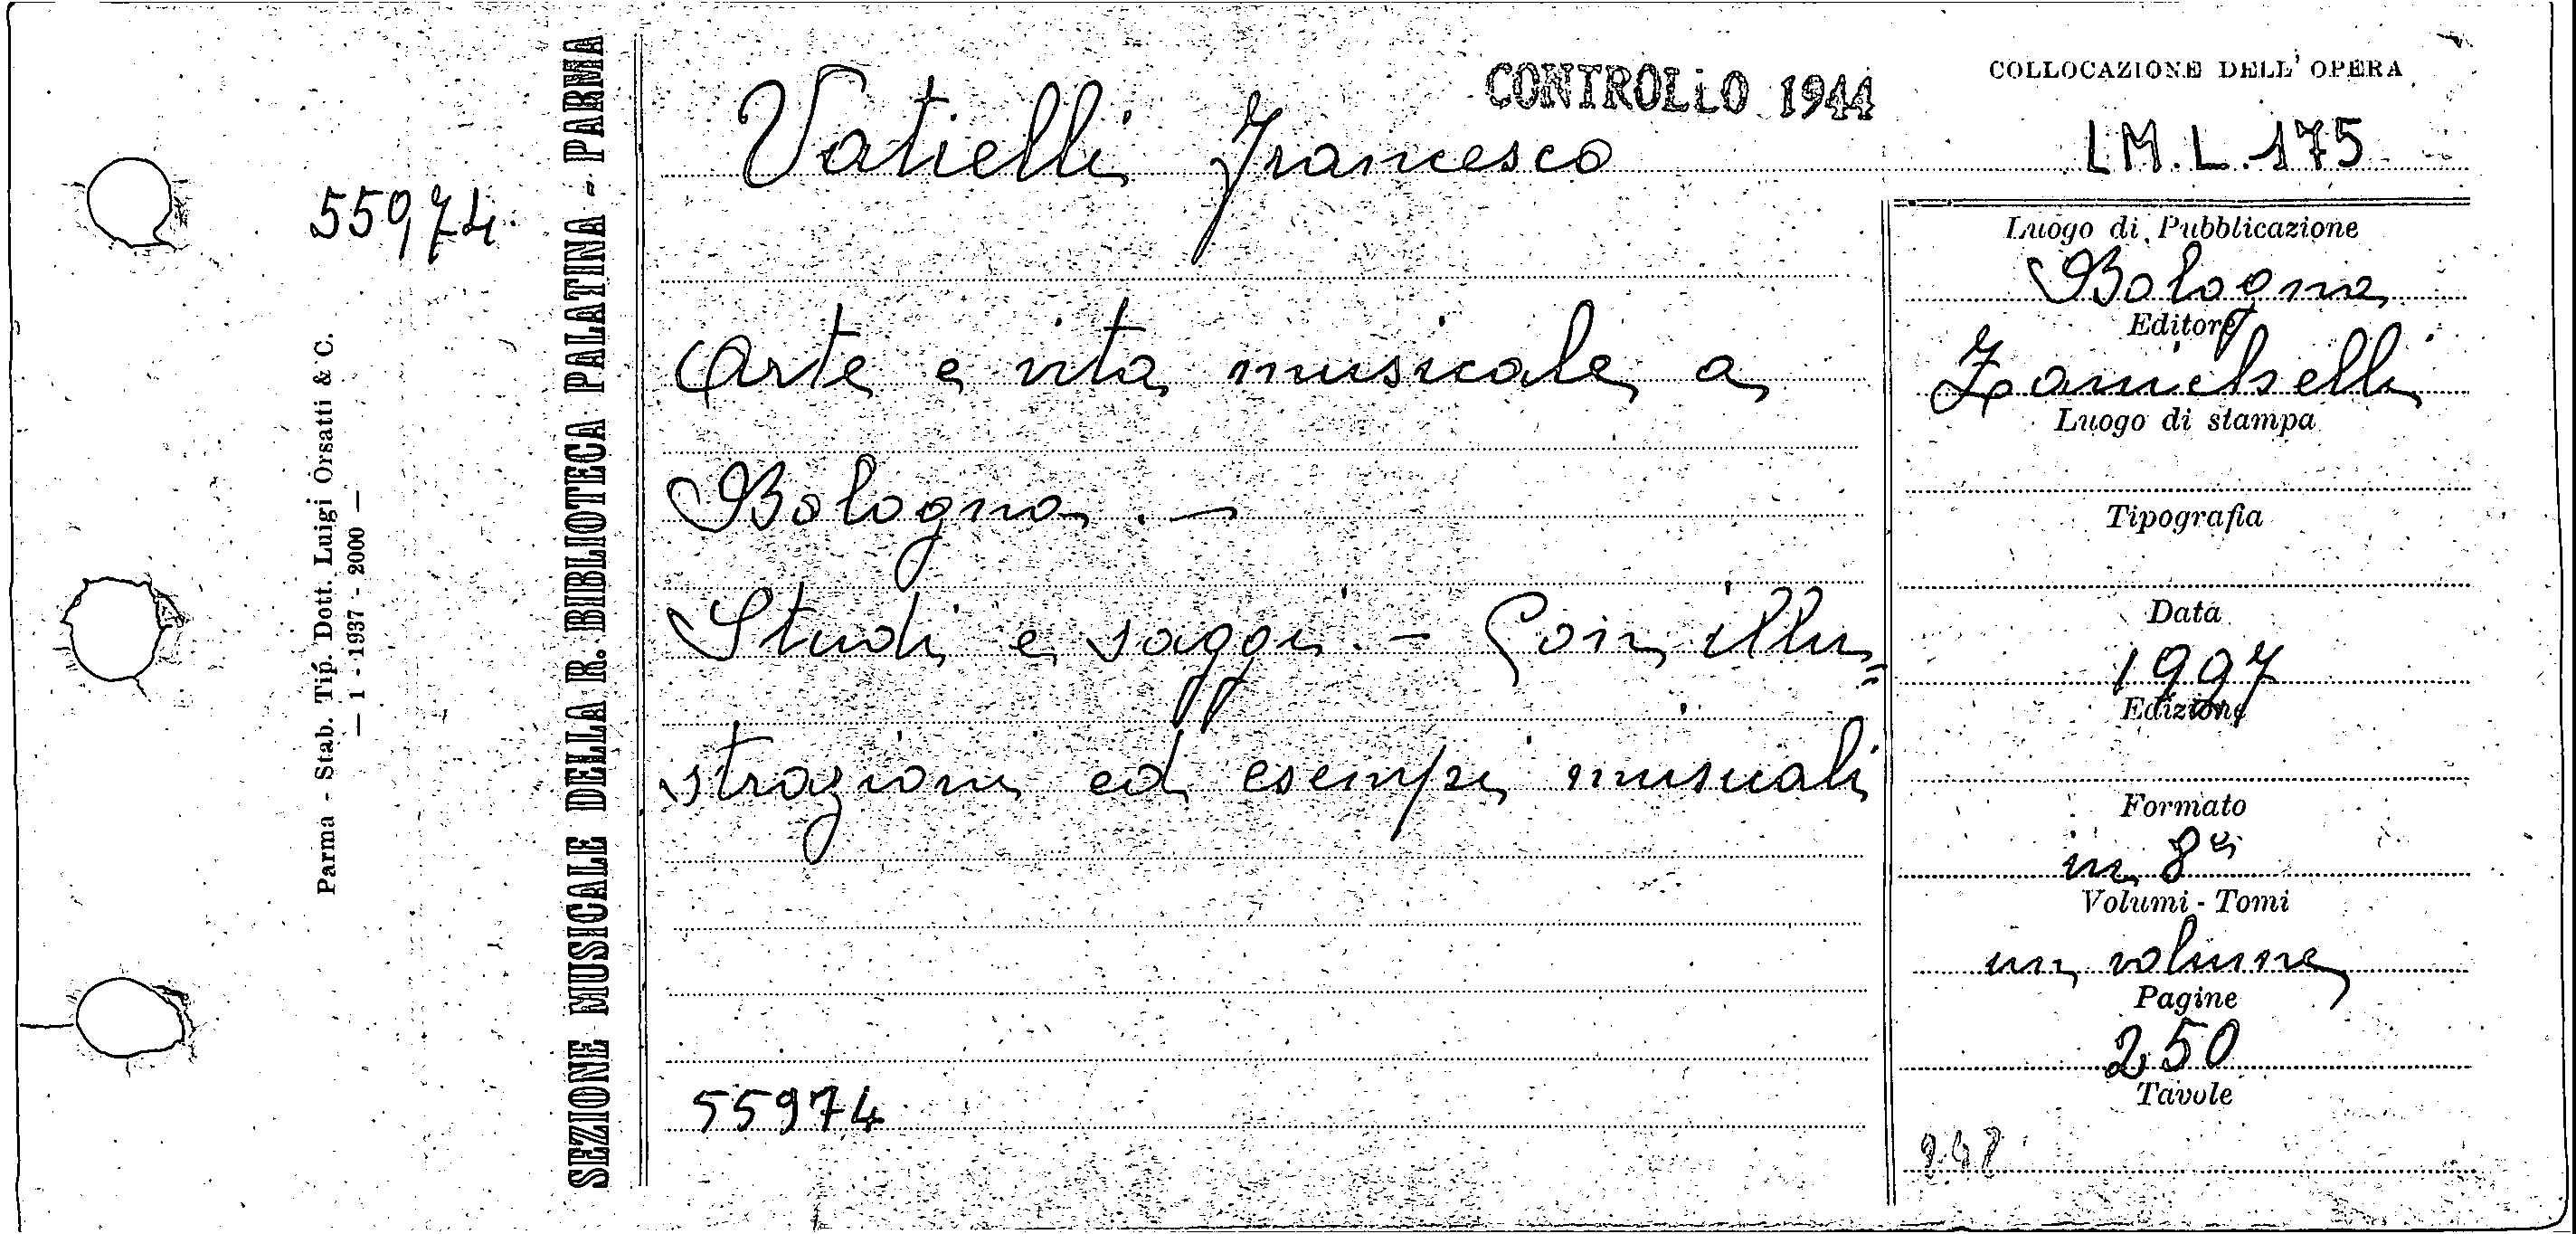 55974
Parma - Stab. Tip. Dott. Luigi Orsatti & C.
— 1 - 1937 - 2000 —
SEZIONE MUSICALE DELLA R. BIBLIOTECA PALATINA - PARMA
CONTROLLO 1944
Vatielli Francesco
Arte e vita musicale a
Bologna. —
Studi e saggi. — Con illu=
strazioni ed esempi musicali
55974
COLLOCAZIONE DELL' OPERA
LM.L.175
Luogo di Pubblicazione
Bologna
Editore
Zanichelli
Luogo di stampa
Tipografia
Data
1997
Edizione
Formato
in 8°
Volumi - Tomi
un volume
Pagine
250
Tavole